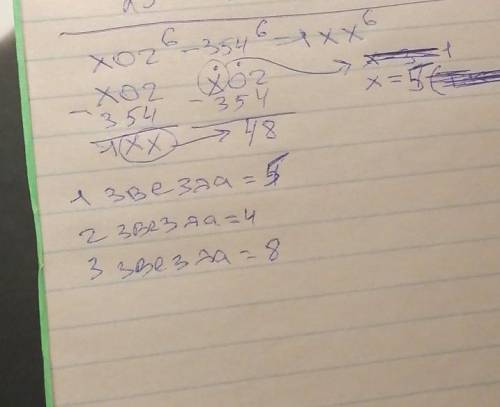 x02⁶ - 354⁶ = 1xx⁶
x02 x02 x = 5
- 354 - 354
1xx 48
1 звезда = 5
2 звезда = 4
3 звезда = 8